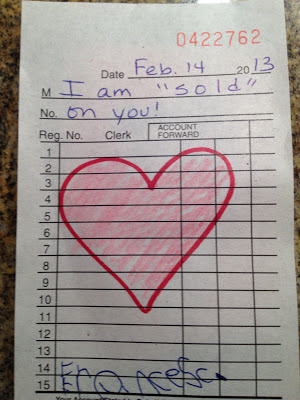 0422762
Date Feb. 14 2013
M I am "sold"
No. on you!
Reg. No. Clerk ACCOUNT FORWARD
1
2
3
4
5
6
7
8
9
10
11
12
13
14
15 Francesc.